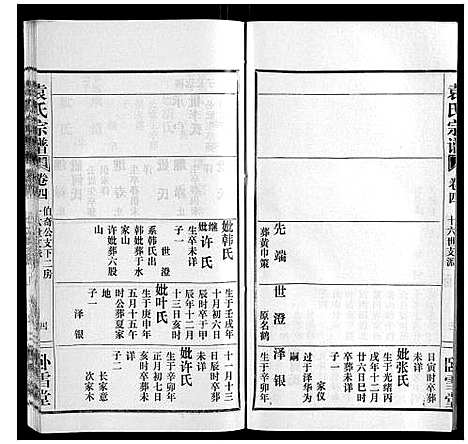 袁氏宗谱
卷四
十六世支派
卧雪堂
先端
葬黄巾策
世澄
原名鹤
泽银
生于辛卯年
过于泽华为
嗣
家仪
妣张氏
生于光绪丙
戌年十二月
廿六日巳时
卒葬未详
日寅时卒葬
未详
妣韩氏
继妣许氏
生卒未详
子一
世澄
系韩氏出
韩妣葬于水
家山
许妣葬六股
山
生于壬戌年
十月初六日
辰时卒于甲
辰年十二月
十三日亥时
妣叶氏
生于庚申年
五月十五午
时公葬夏家
地
子一
泽银
十一月十三
日辰时卒葬
未详
妣许氏
生于辛卯年
正月初七日
亥时卒葬未
详
子二
长家意
次家木
袁氏宗谱
卷四
伯奇公支下二房
四
卧雪堂